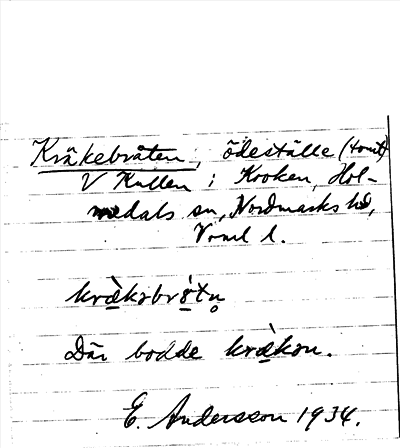 Kräkebråten, ödeställe (tomt)
V Kullen i Kroken, Hol-
medals sn, Nordmarks hd,
Värml l.
kràkəbrö̀tn̥
Där bodde kràkɷn.
E. Andersson 1934.